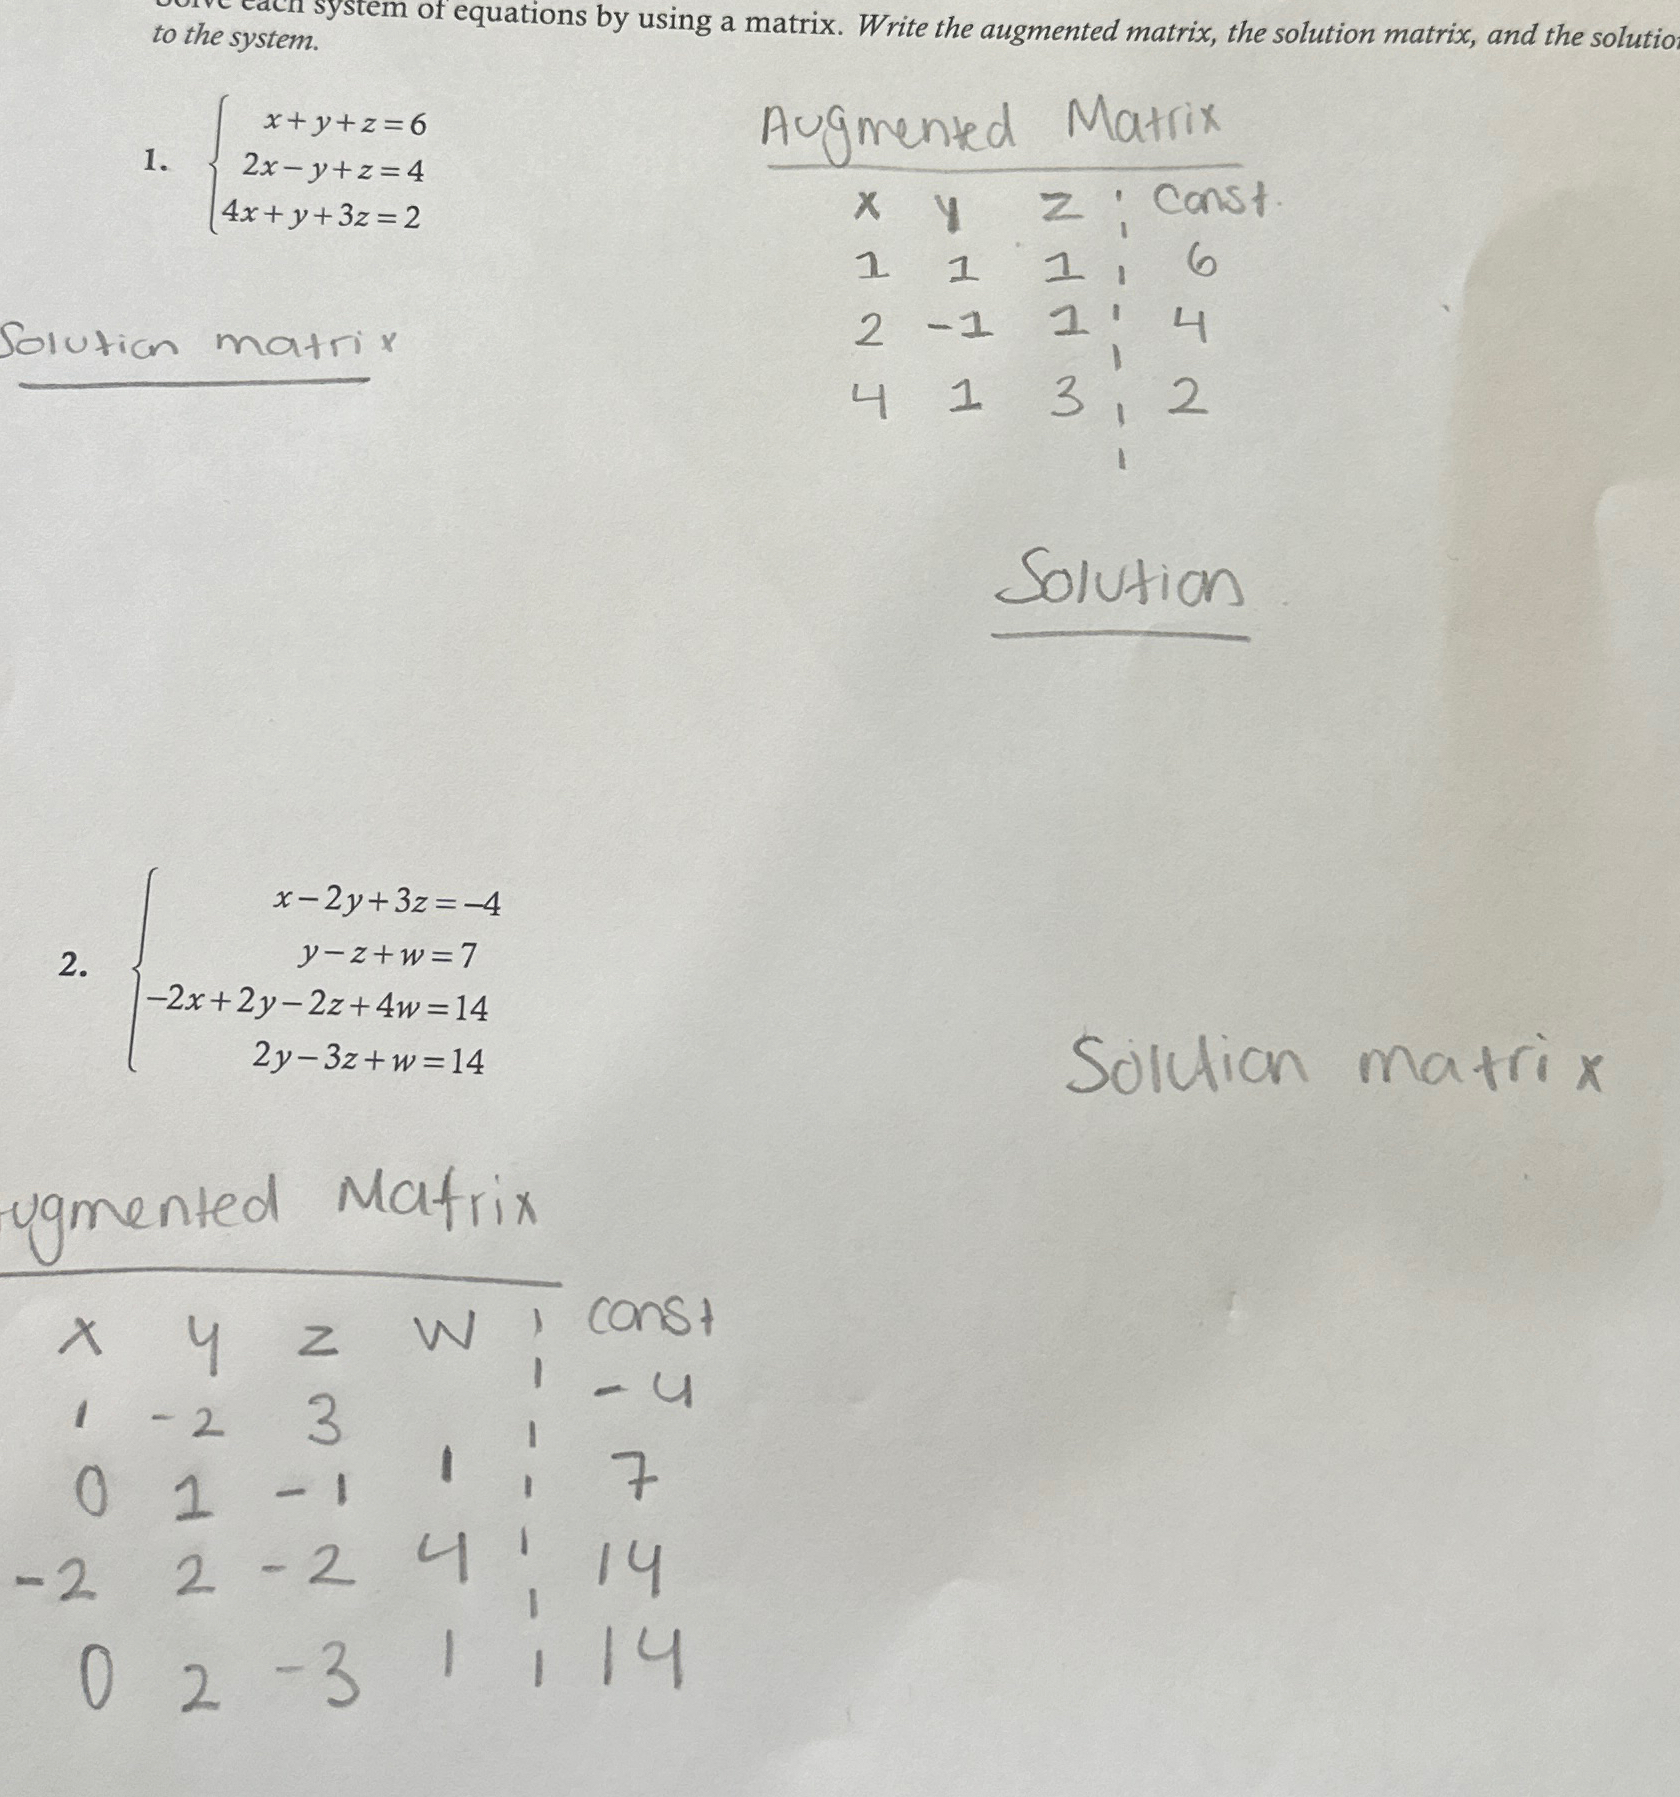 Solve each system of equations by using a matrix. Write the augmented matrix, the solution matrix, and the
to the system.
1.
x+y+z=6
2x-y+z=4
4x+y+3z=2
Augmented Matrix
x y z ¦ const.
1 1 1 ¦ 6
2 -1 1 ¦ 4
4 1 3 ¦ 2
Solution matrix
Solution
2.
x-2y+3z=-4
y-z+w=7
-2x+2y-2z+4w=14
2y-3z+w=14
Solution matrix
ugmented Matrix
x y z w ¦ const
1 -2 3 ¦ -4
0 1 -1 1 ¦ 7
-2 2 -2 4 ¦ 14
0 2 -3 1 ¦ 14